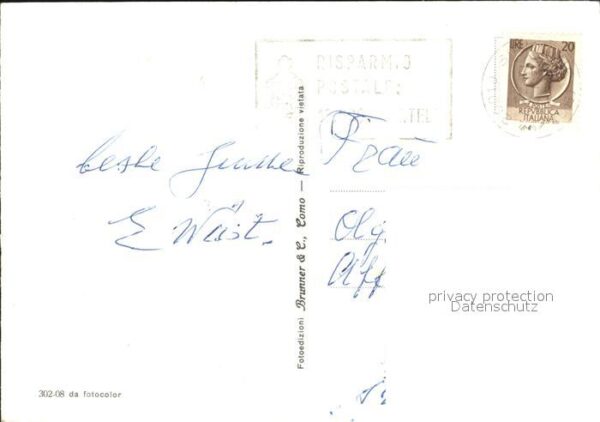 RISPARMIO
POSTALE
LIRE 20
REPUBBLICA
ITALIANA
beste Grüsse
E. Wüst.
Frau
Olg
Aff
Fotoedizioni Brunner & C., Como — Riproduzione vietata
privacy protection
Datenschutz
302-08 da fotocolor